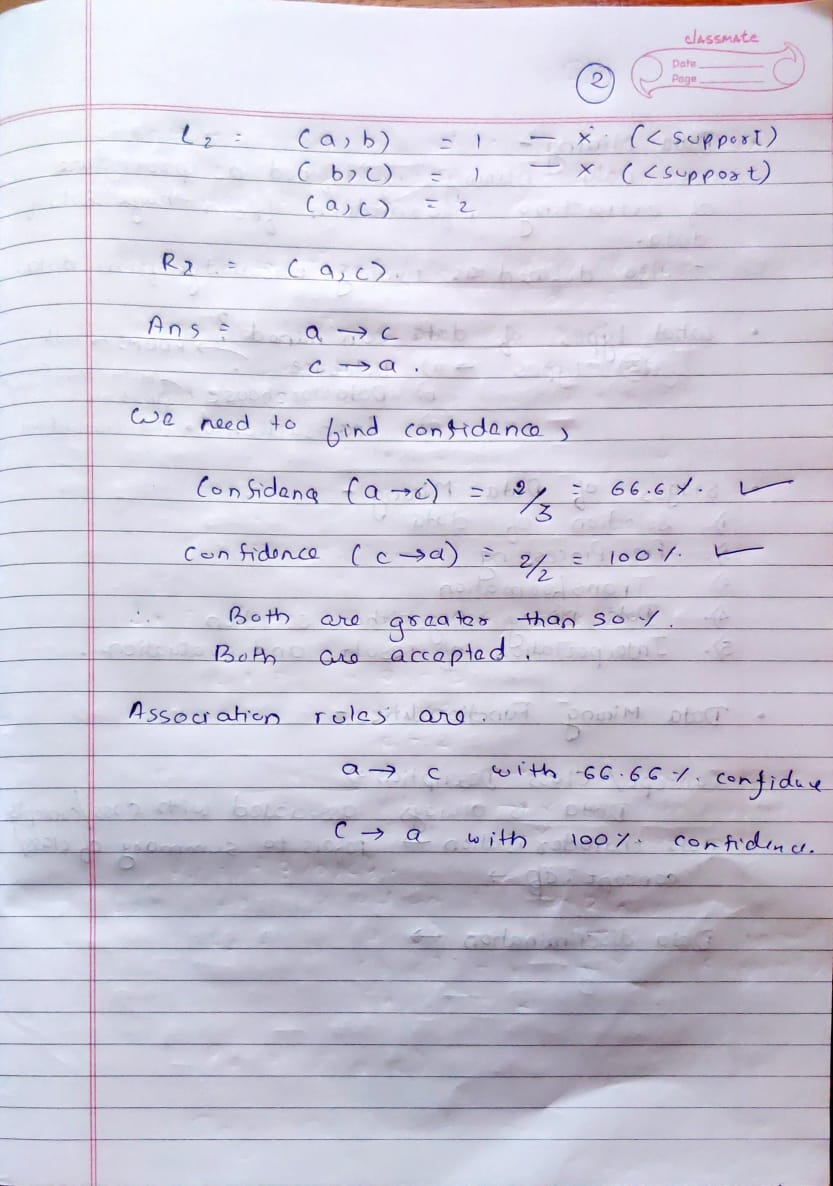 classmate
Date
Page
2
L2 = (a,b) = 1 — x (< support)
(b,c) = 1 — x (<support)
(a,c) = 2
R2 = (a,c).
Ans = a → c
c → a.
We need to find confidance,
Confidenc (a→c) = 2/3 = 66.6%. ✓
confidence (c→a) = 2/2 = 100%. ✓
∴ Both are greater than 50%.
Both are accepted.
Association rules are.
a → c with 66.66%. confidence
C → a with 100%. confidence.